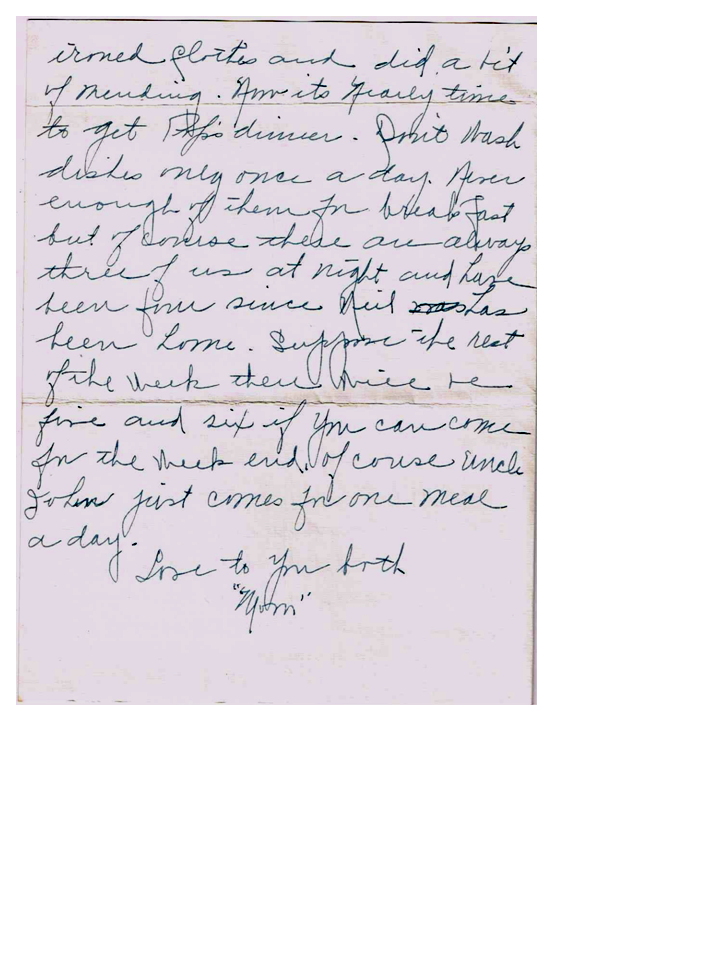 ironed clothes and did a bit
of mending. Now its nearly time
to get Pap's dinner. Don't wash
dishes only once a day. Never
enough of them for breakfast
but of course there are always
three of us at night and have
been four since Neil was has
been home. Suppose the rest
of the week there will be
five and six if you can come
for the week end. Of couse Uncle
John just comes for one meal
a day.
Love to you both
"Mom"